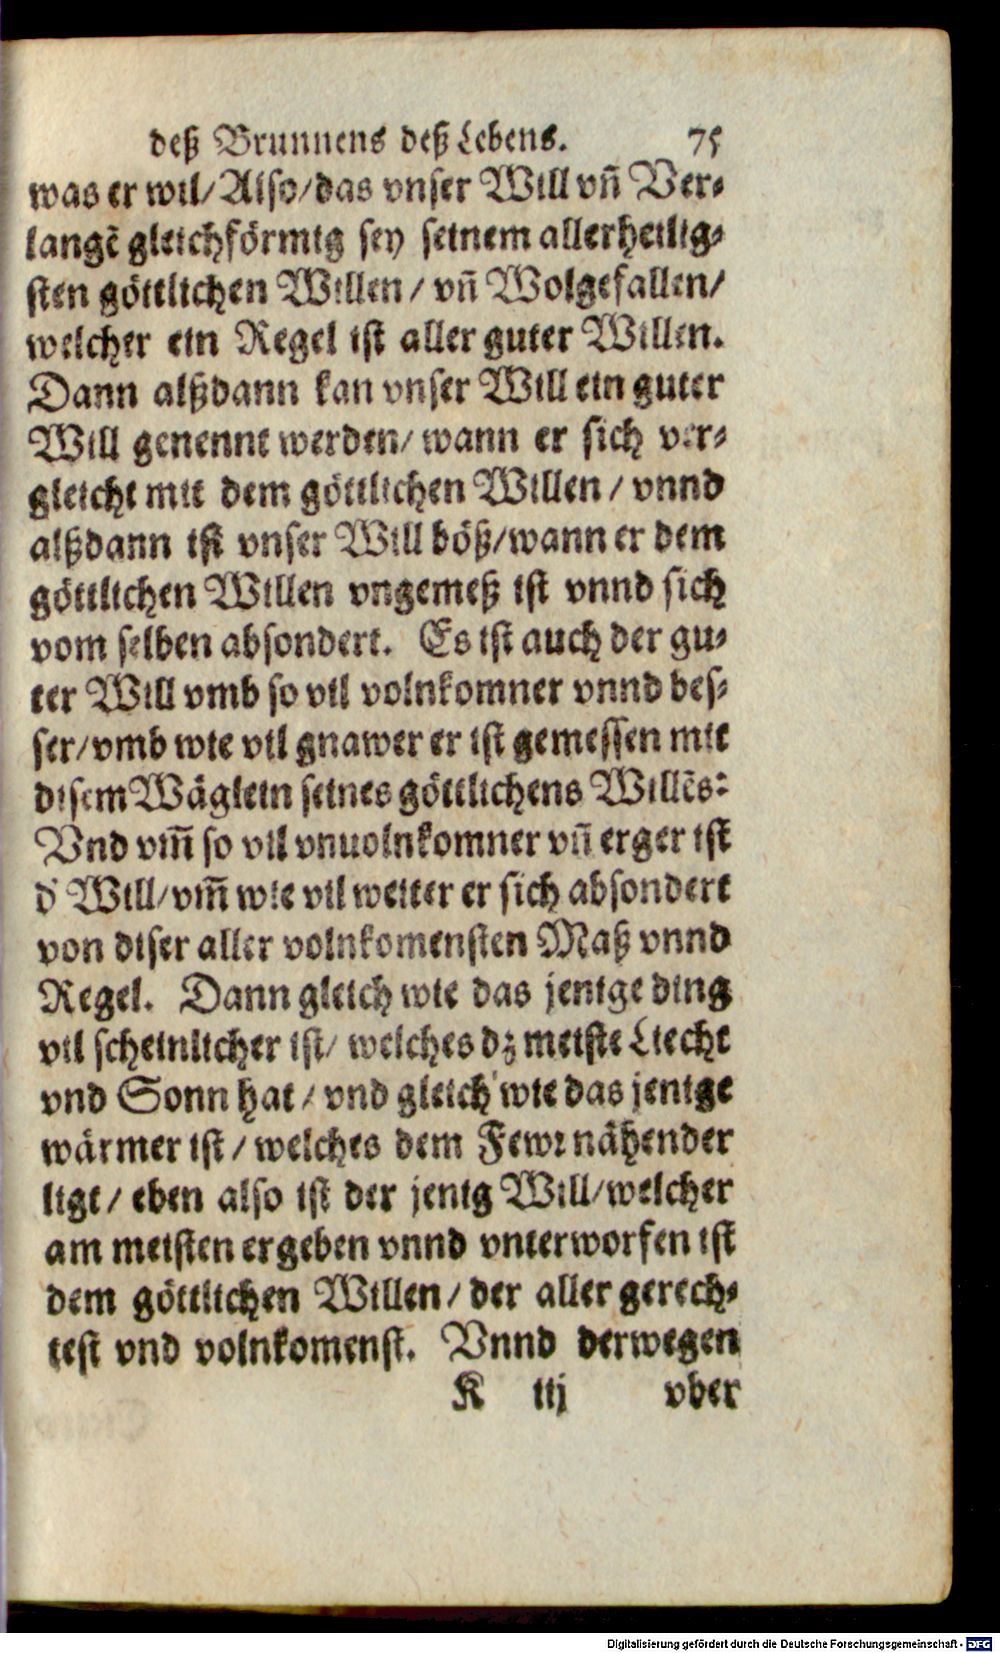 deß Brunnens deß Lebens. 75
was er wil/Also/das vnser Will vñ Ver⸗
langẽ gleichförmig sey seinem allerheilig⸗
sten göttlichen Willen/ vñ Wolgefallen/
welcher ein Regel ist aller guter Willen.
Dann alßdann kan vnser Will ein guter
Will genennt werden/ wann er sich ver⸗
gleicht mit dem göttlichen Willen/ vnnd
alßdann ist vnser Will böß/wann er dem
göttlichen Willen vngemeß ist vnnd sich
vom selben absondert. Es ist auch der gu⸗
ter Will vmb so vil volnkomner vnnd bes⸗
ser/vmb wie vil gnawer er ist gemessen mit
disem Wäglein seines göttlichens Willẽs:
Vnd vm̃ so vil vnuolnkomner vñ erger ist
d' Will/vm̃ wie vil weiter er sich absondert
von diser aller volnkomensten Maß vnnd
Regel. Dann gleich wie das jenige ding
vil scheinlicher ist/ welches dz meiste Liecht
vnd Sonn hat/ vnd gleich wie das jenige
wärmer ist/ welches dem Fewr nähender
ligt/ eben also ist der jenig Will/welcher
am meisten ergeben vnnd vnterworfen ist
dem göttlichen Willen/ der aller gerech⸗
test vnd volnkomenst. Vnnd derwegen
K iij vber
Digitalisierung gefördert durch die Deutsche Forschungsgemeinschaft - DFG